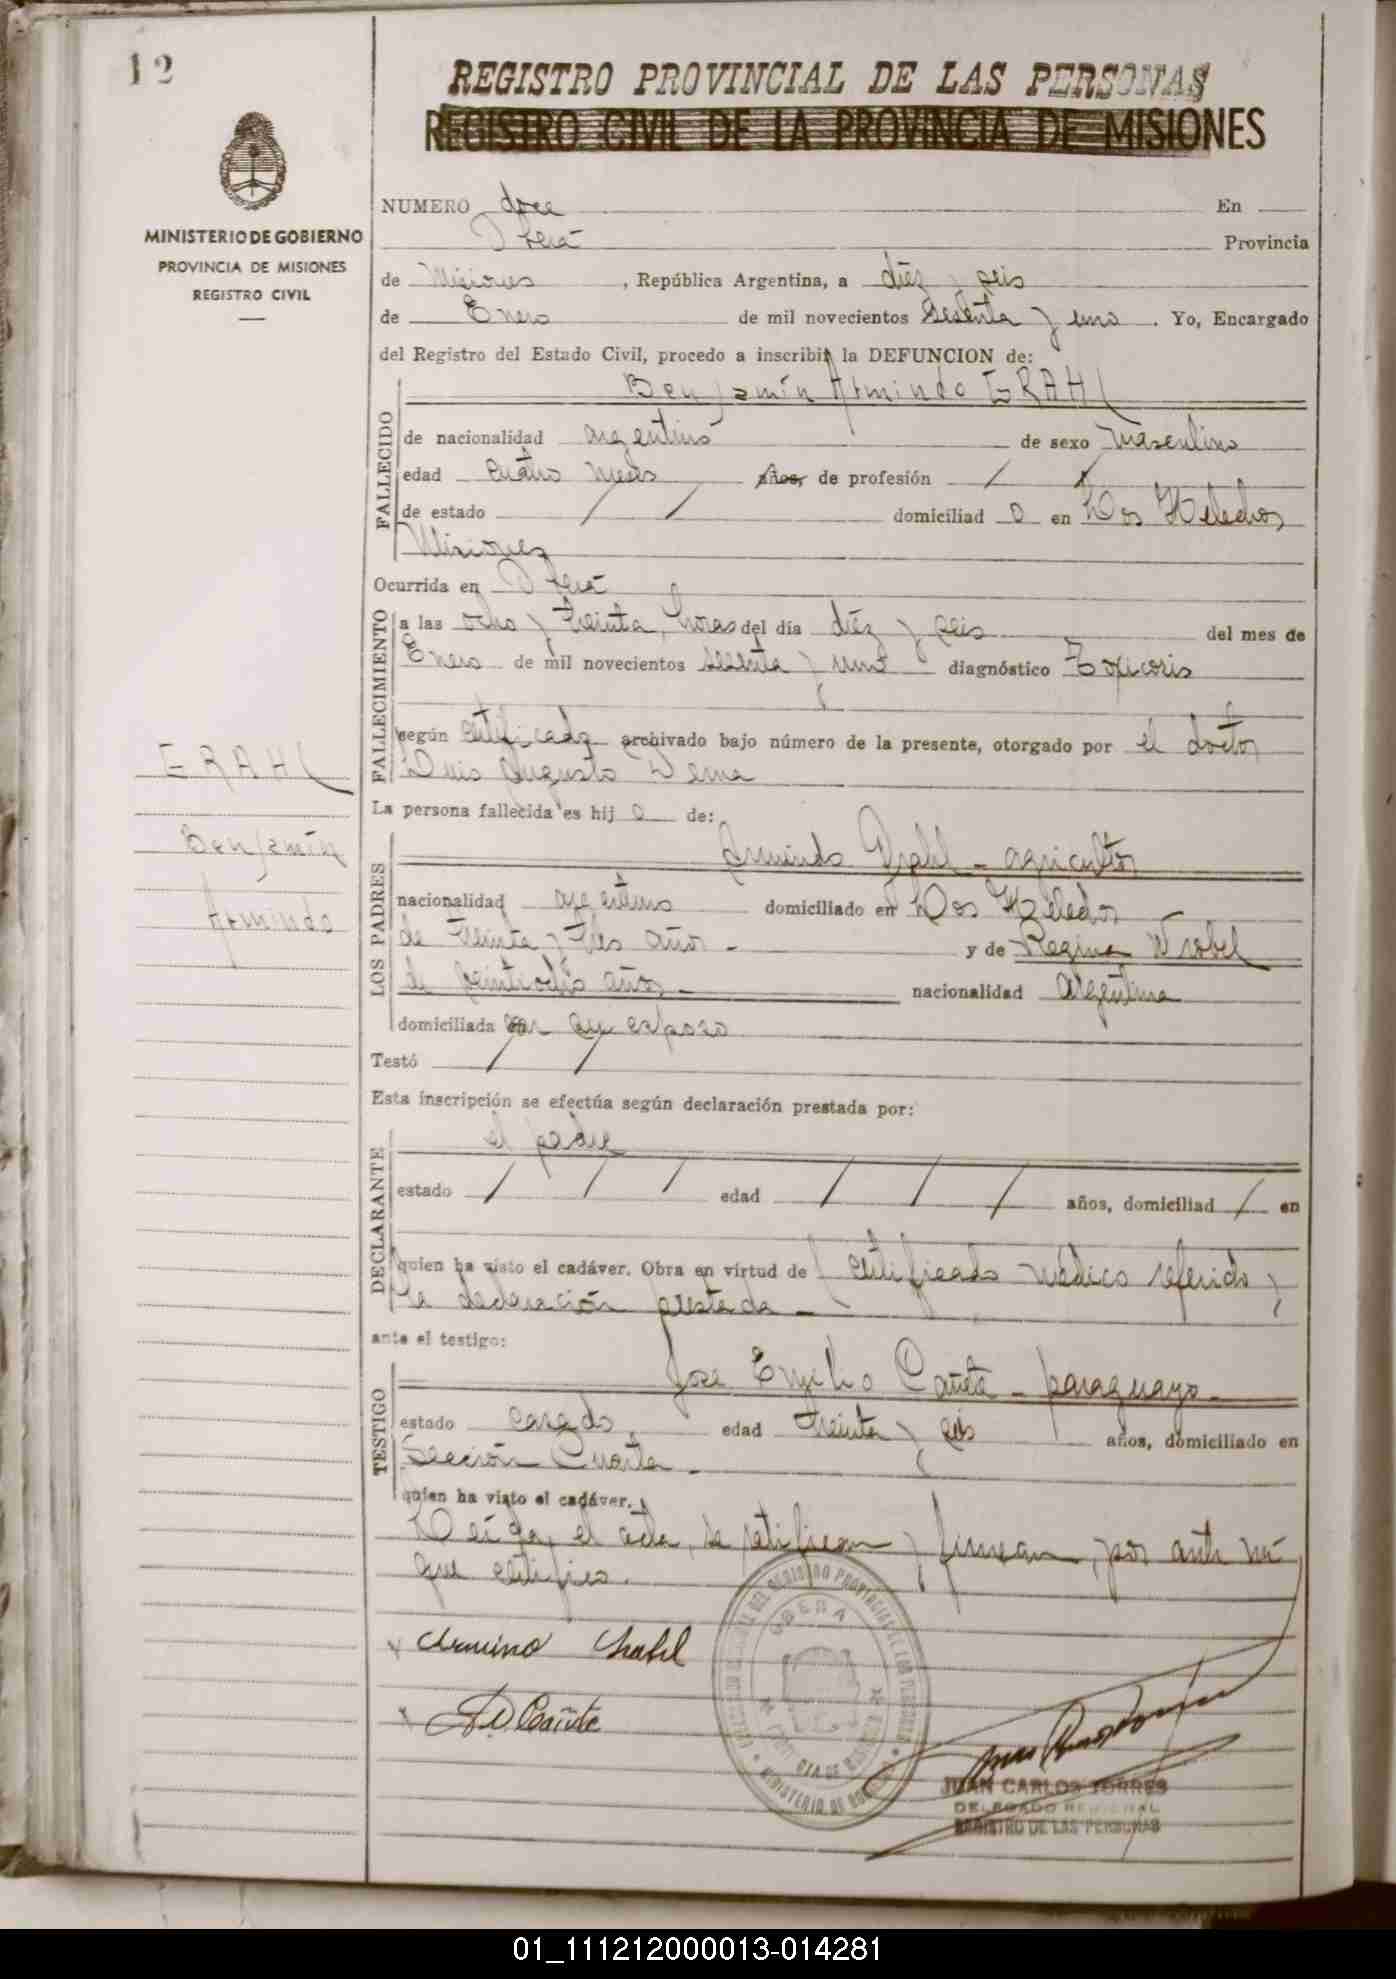 12
REGISTRO PROVINCIAL DE LAS PERSONAS
REGISTRO CIVIL DE LA PROVINCIA DE MISIONES
MINISTERIO DE GOBIERNO
PROVINCIA DE MISIONES
REGISTRO CIVIL
NUMERO doce En
Oberá Provincia
de Misiones, República Argentina, a diéz y seis
de Enero de mil novecientos sesenta y uno. Yo, Encargado
del Registro del Estado Civil, procedo a inscribir la DEFUNCION de:
Benjamín Armindo GRAHL
FALLECIDO
de nacionalidad argentino de sexo masculino
edad cuatro meses años, de profesión / /
de estado / / domiciliad o en Los Helechos
Misiones
Ocurrida en Oberá
FALLECIMIENTO
a las ocho y treinta horas del día diéz y seis del mes de
Enero de mil novecientos sesenta y uno diagnóstico Toxicosis
según certificado archivado bajo número de la presente, otorgado por el doctor
Luis Augusto
La persona fallecida es hij o de:
LOS PADRES
Armindo Grahl - agricultor
nacionalidad argentino domiciliado en Los Helechos
de treinta y tres años - y de Regina Wrobel
de veintiocho años - nacionalidad argentina
domiciliada con su esposo
Testó / /
Esta inscripción se efectúa según declaración prestada por:
DECLARANTE
el padre
estado / / / edad / / / años, domiciliad / en
quien ha visto el cadáver. Obra en virtud de certificado médico referido y
la declaración prestada -
ante el testigo:
TESTIGO
José Cañete - paraguayo -
estado casado edad treinta y seis años, domiciliado en
Sección Cuarta -
quien ha visto el cadáver.
Leída el acta, se ratifican y firman, por ante mí
que certifico.
GRAHL
Benjamín
Armindo
Armindo Grahl
Cañete
OBERA
JUAN CARLOS TORRES
DELEGADO REGIONAL
REGISTRO DE LAS PERSONAS
01_111212000013-014281